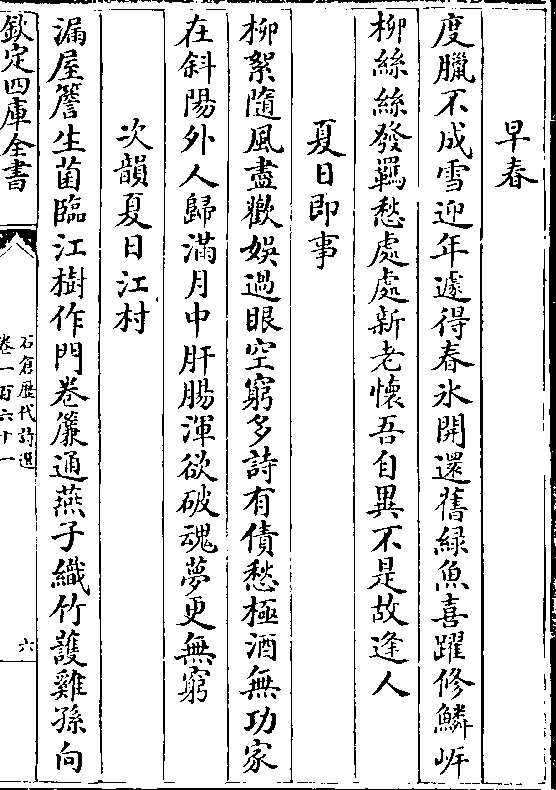 早春
度臘不成雪迎年遽得春氷開還舊緑魚喜躍修鱗㟁
柳絲絲發羈愁處處新老懷吾自異不是故逢人
夏日即事
柳絮隨風盡歡娛過眼空窮多詩有債愁極酒無功家
在斜陽外人歸滿月中肝腸渾欲破魂夢更無窮
次韻夏日江村
漏屋簷生菌臨江樹作門卷簾通燕子織竹護雞孫向
欽定四庫全書
石倉歴代詩選
卷一百六十一
六